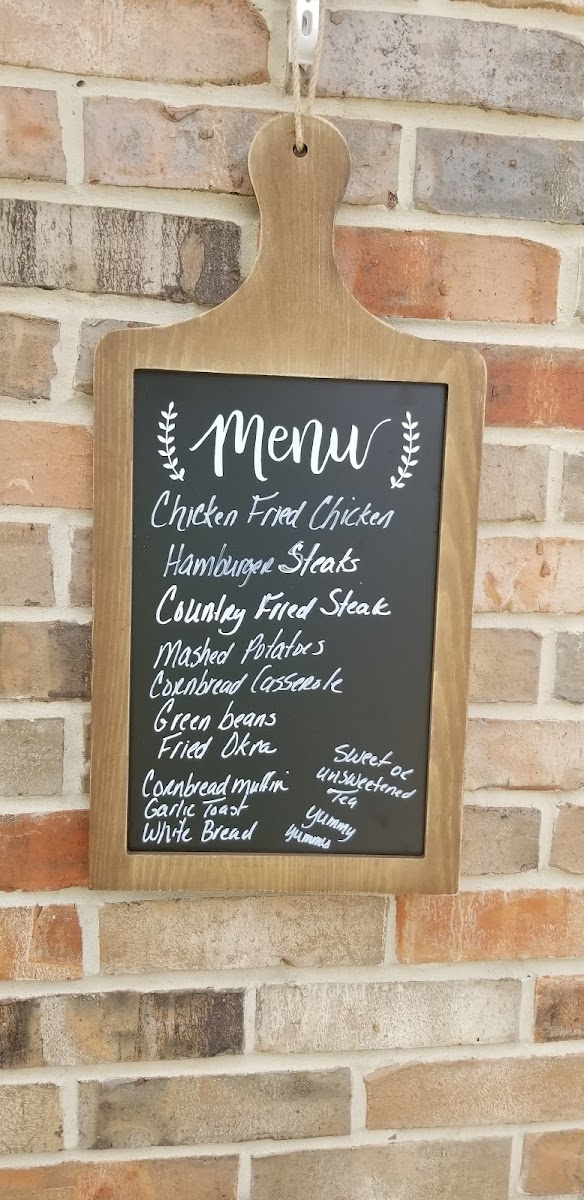 Menu
Chicken Fried Chicken
Hamburger Steaks
Country Fried Steak
Mashed Potatoes
Cornbread Casserole
Green beans
Fried Okra
Cornbread muffin
Garlic Toast
White Bread
Sweet or
unsweetened
Tea
Yummy
yummy